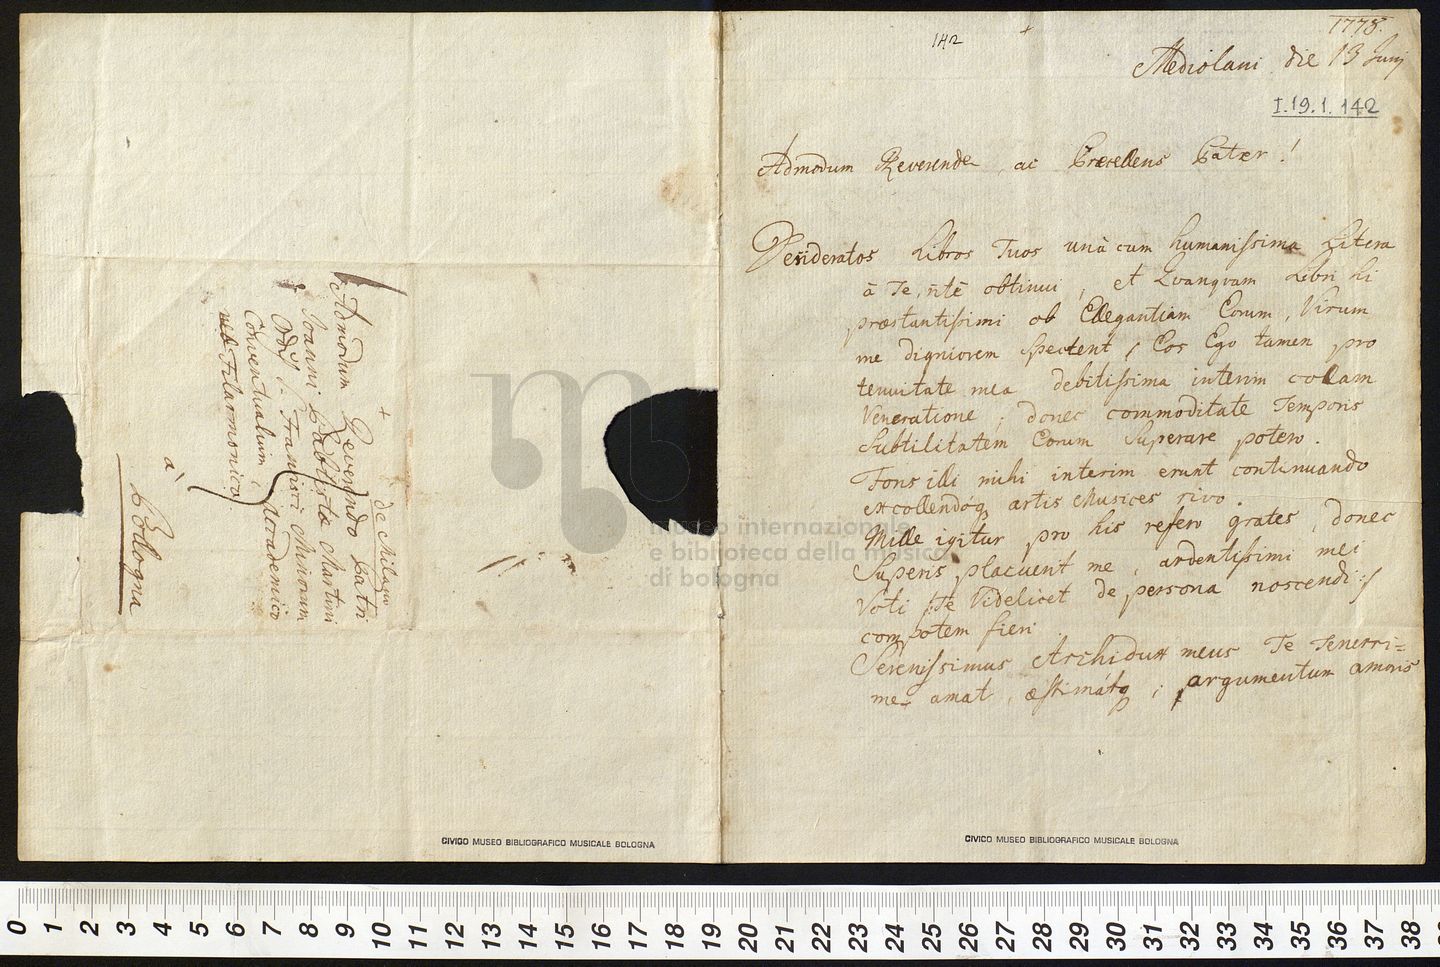 de Milano
Admodum Reverendo Patri
Joanni Babtistæ Martini
Ord: S. Francisci Minorum
Conventualium, Accademico
Filarmonico
à
Bollogna
CIVICO MUSEO BIBLIOGRAFICO MUSICALE BOLOGNA
142
1778.
Mediolani die 13 Junij
I.19.1.142
Admodum Reverende, ac Præcellens Pater!
Desideratos Libros Tuos unà cum humanissima Litera
à Te, ritè obtinui, et Quanquam Libri hi
præstantissimi ob Ellegantiam Eorum, Virum
me digniorem spectent, Eos Ego tamen pro
tenuitate mea debitissima interim colam
Veneratione, donec commoditate Temporis
Subtilitatem Eorum Superare potero.
Fons illi mihi interim erunt continuando
excollendóq artis Musices rivo.
Mille igitur pro his refero grates, donec
Superis placuerit me, ardentissimi mei
Voti /: Te Videlicet de persona noscendi :/
compotem fieri
Serenissimus Archidux meus Te Tenerri=
me amat, æstimátq; argumentum amoris
museo internazionale
e biblioteca della musica
di bologna
CIVICO MUSEO BIBLIOGRAFICO MUSICALE BOLOGNA
0 1 2 3 4 5 6 7 8 9 10 11 12 13 14 15 16 17 18 19 20 21 22 23 24 25 26 27 28 29 30 31 32 33 34 35 36 37 38